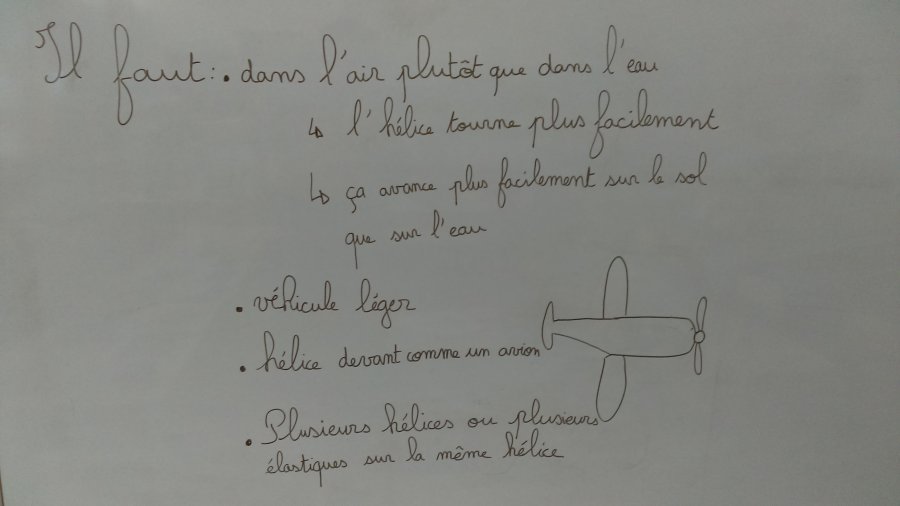 Il faut : • dans l'air plutôt que dans l'eau
↳ l'hélice tourne plus facilement
↳ ça avance plus facilement sur le sol
que sur l'eau
• véhicule léger
• hélice devant comme un avion
• Plusieurs hélices ou plusieurs
élastiques sur la même hélice